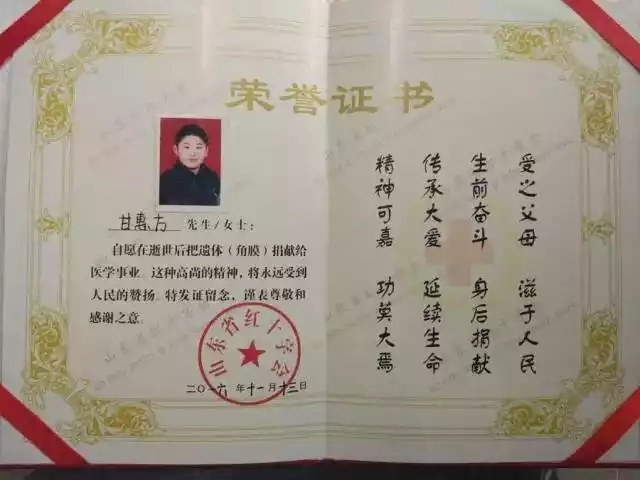 荣誉证书
甘惠方 先生/女士：
自愿在逝世后把遗体（角膜）捐献给
医学事业。这种高尚的精神，将永远受到
人民的赞扬。特发证留念，谨表尊敬和
感谢之意。
山东省红十字会
二〇一六年十一月十三日
受之父母 滋于人民
生前奋斗 身后捐献
传承大爱 延续生命
精神可嘉 功莫大焉